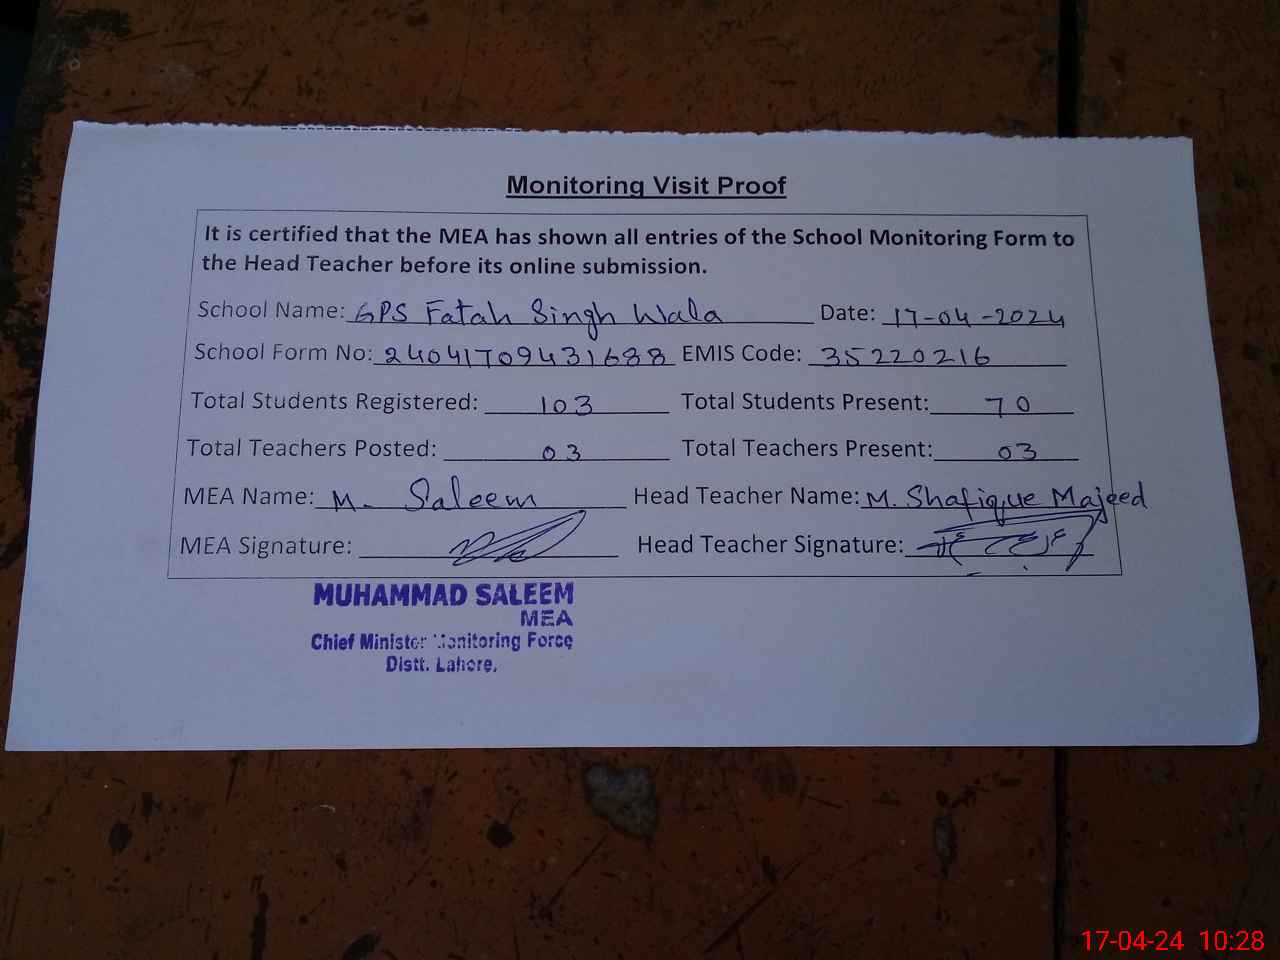 Monitoring Visit Proof
It is certified that the MEA has shown all entries of the School Monitoring Form to
the Head Teacher before its online submission.
School Name: GPS Fatah Singh Wala Date: 17-04-2024
School Form No: 24041709431688 EMIS Code: 35220216
Total Students Registered: 103 Total Students Present: 70
Total Teachers Posted: 03 Total Teachers Present: 03
MEA Name: M. Saleem Head Teacher Name: M. Shafique Majeed
MEA Signature: Head Teacher Signature:
MUHAMMAD SALEEM
MEA
Chief Minister Monitoring Force
Distt. Lahore.
17-04-24 10:28